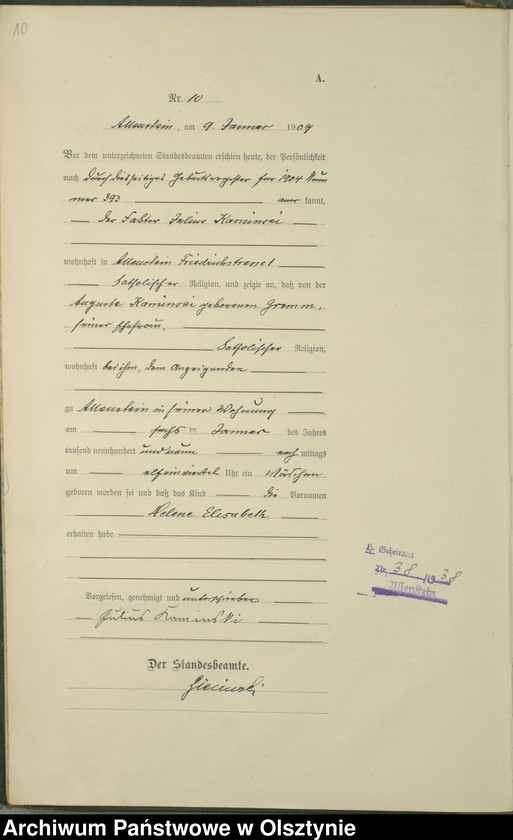 10
A.
Nr. 10
Allenstein, am 9. Januar 1909
Vor dem unterzeichneten Standesbeamten erschien heute, der Persönlichkeit
nach durch diesseitiges Geburtsregister für 1904 Num
mer 393 aner kannt,
der Faktor Julius Kaminski
wohnhaft in Allenstein Friedrichstraße 1
katholischer Religion, und zeigte an, daß von der
Auguste Kaminski geborenen Gramm,
seiner Ehefrau,
katholischer Religion,
wohnhaft bei ihm, dem Anzeigenden
zu Allenstein in seiner Wohnung
am sechsten Januar des Jahres
tausend neunhundert und neun nach mittags
um elfeinviertel Uhr ein Mädchen
geboren worden sei und daß das Kind die Vornamen
Helene Elisabeth
erhalten habe.
Vorgelesen, genehmigt und unterschrieben
Julius Kaminski
Der Standesbeamte.
H. Geheiratet
Nr. 38/1938
Allenstein
Archiwum Państwowe w Olsztynie